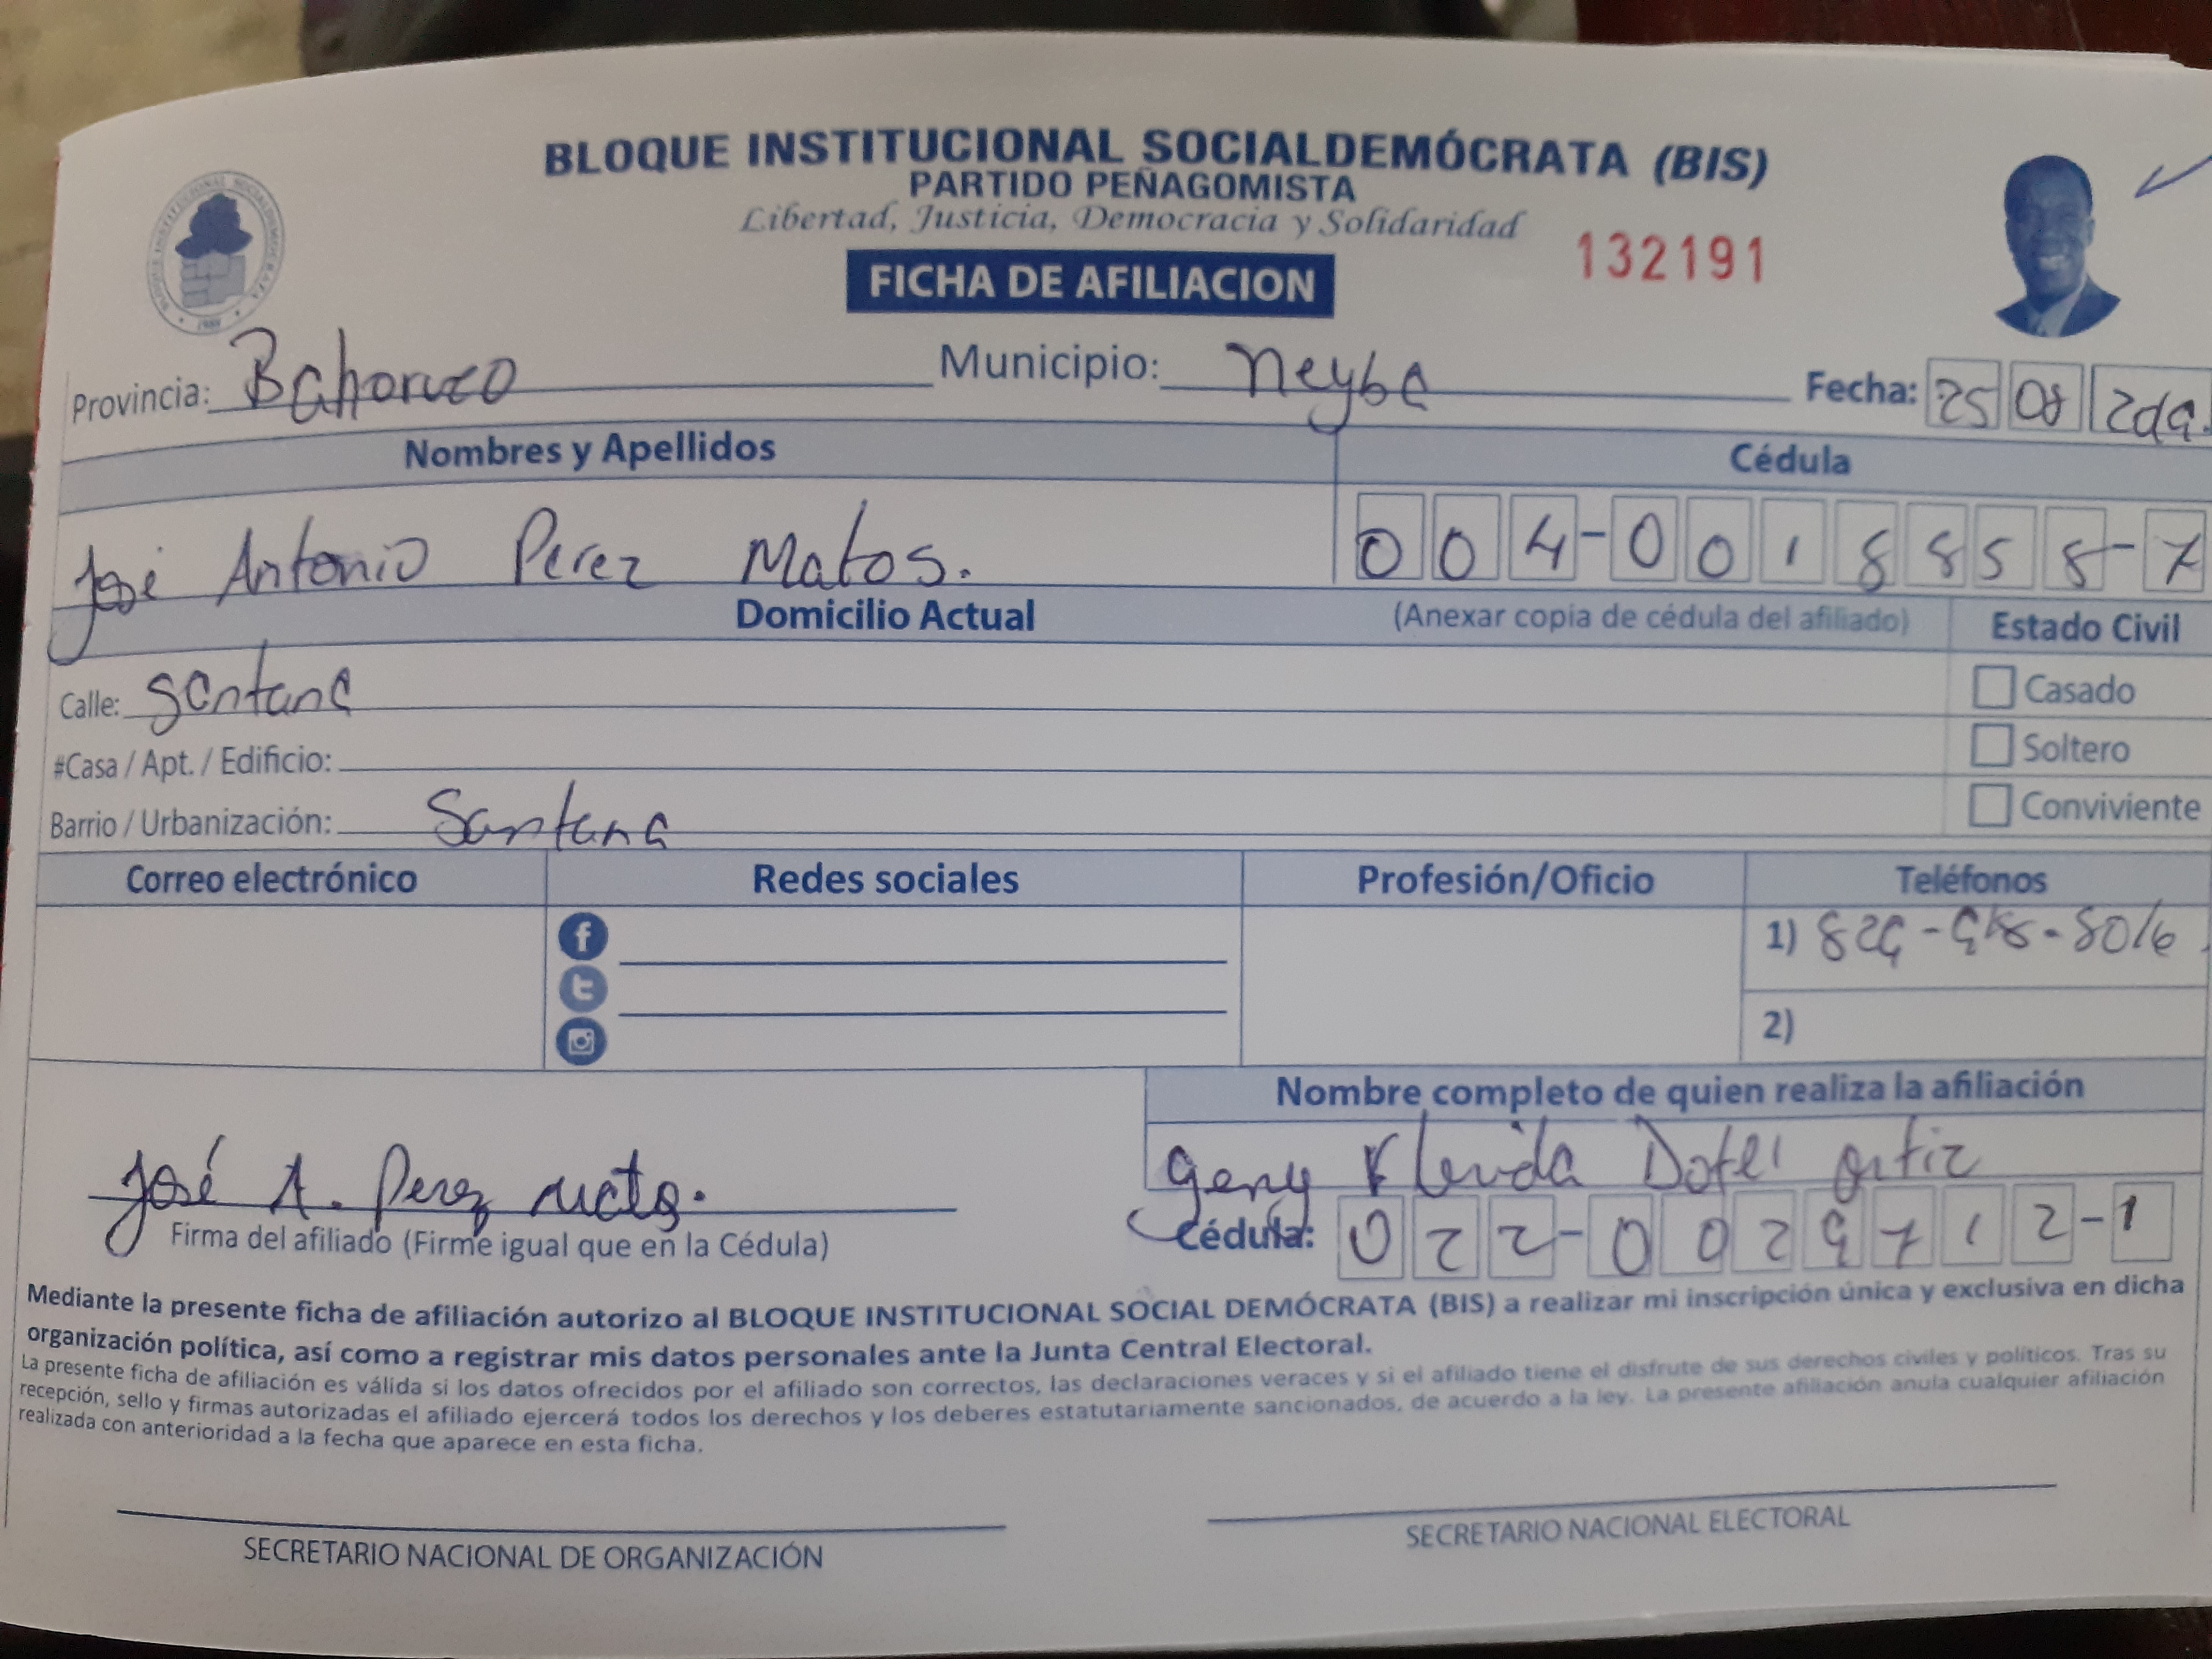 BLOQUE INSTITUCIONAL SOCIALDEMÓCRATA (BIS)
PARTIDO PEÑAGOMISTA
Libertad, Justicia, Democracia y Solidaridad
132191
FICHA DE AFILIACION
Provincia: Bahoruco Municipio: Neyba Fecha: 25 08
Nombres y Apellidos Cédula
José Antonio Perez Matos. 004-0018858-7
Domicilio Actual (Anexar copia de cédula del afiliado) Estado Civil
Calle: Santana Casado
#Casa / Apt. / Edificio: Soltero
Barrio / Urbanización: Santana Conviviente
Correo electrónico Redes sociales Profesión/Oficio Teléfonos
1) 829- -8016
2)
Nombre completo de quien realiza la afiliación
Geny Dotel Ortiz
José A. Perez Matos.
Firma del afiliado (Firme igual que en la Cédula) Cédula: 022-0029712-1
Mediante la presente ficha de afiliación autorizo al BLOQUE INSTITUCIONAL SOCIAL DEMÓCRATA (BIS) a realizar mi inscripción única y exclusiva en dicha
organización política, así como a registrar mis datos personales ante la Junta Central Electoral.
La presente ficha de afiliación es válida si los datos ofrecidos por el afiliado son correctos, las declaraciones veraces y si el afiliado tiene el disfrute de sus derechos civiles y políticos. Tras su
recepción, sello y firmas autorizadas el afiliado ejercerá todos los derechos y los deberes estatutariamente sancionados, de acuerdo a la ley. La presente afiliación anula cualquier afiliación
realizada con anterioridad a la fecha que aparece en esta ficha.
SECRETARIO NACIONAL DE ORGANIZACIÓN SECRETARIO NACIONAL ELECTORAL